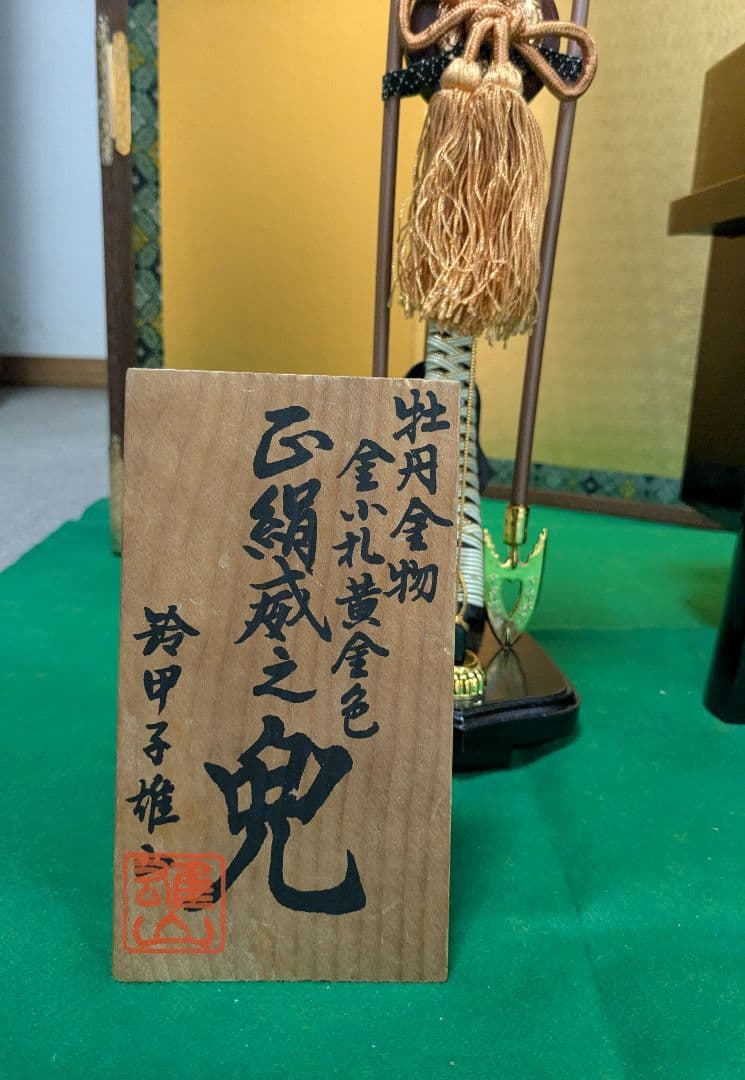 牡丹金物
金小札黄金色
正絹威之
兜
鈴甲子雄山
雄山